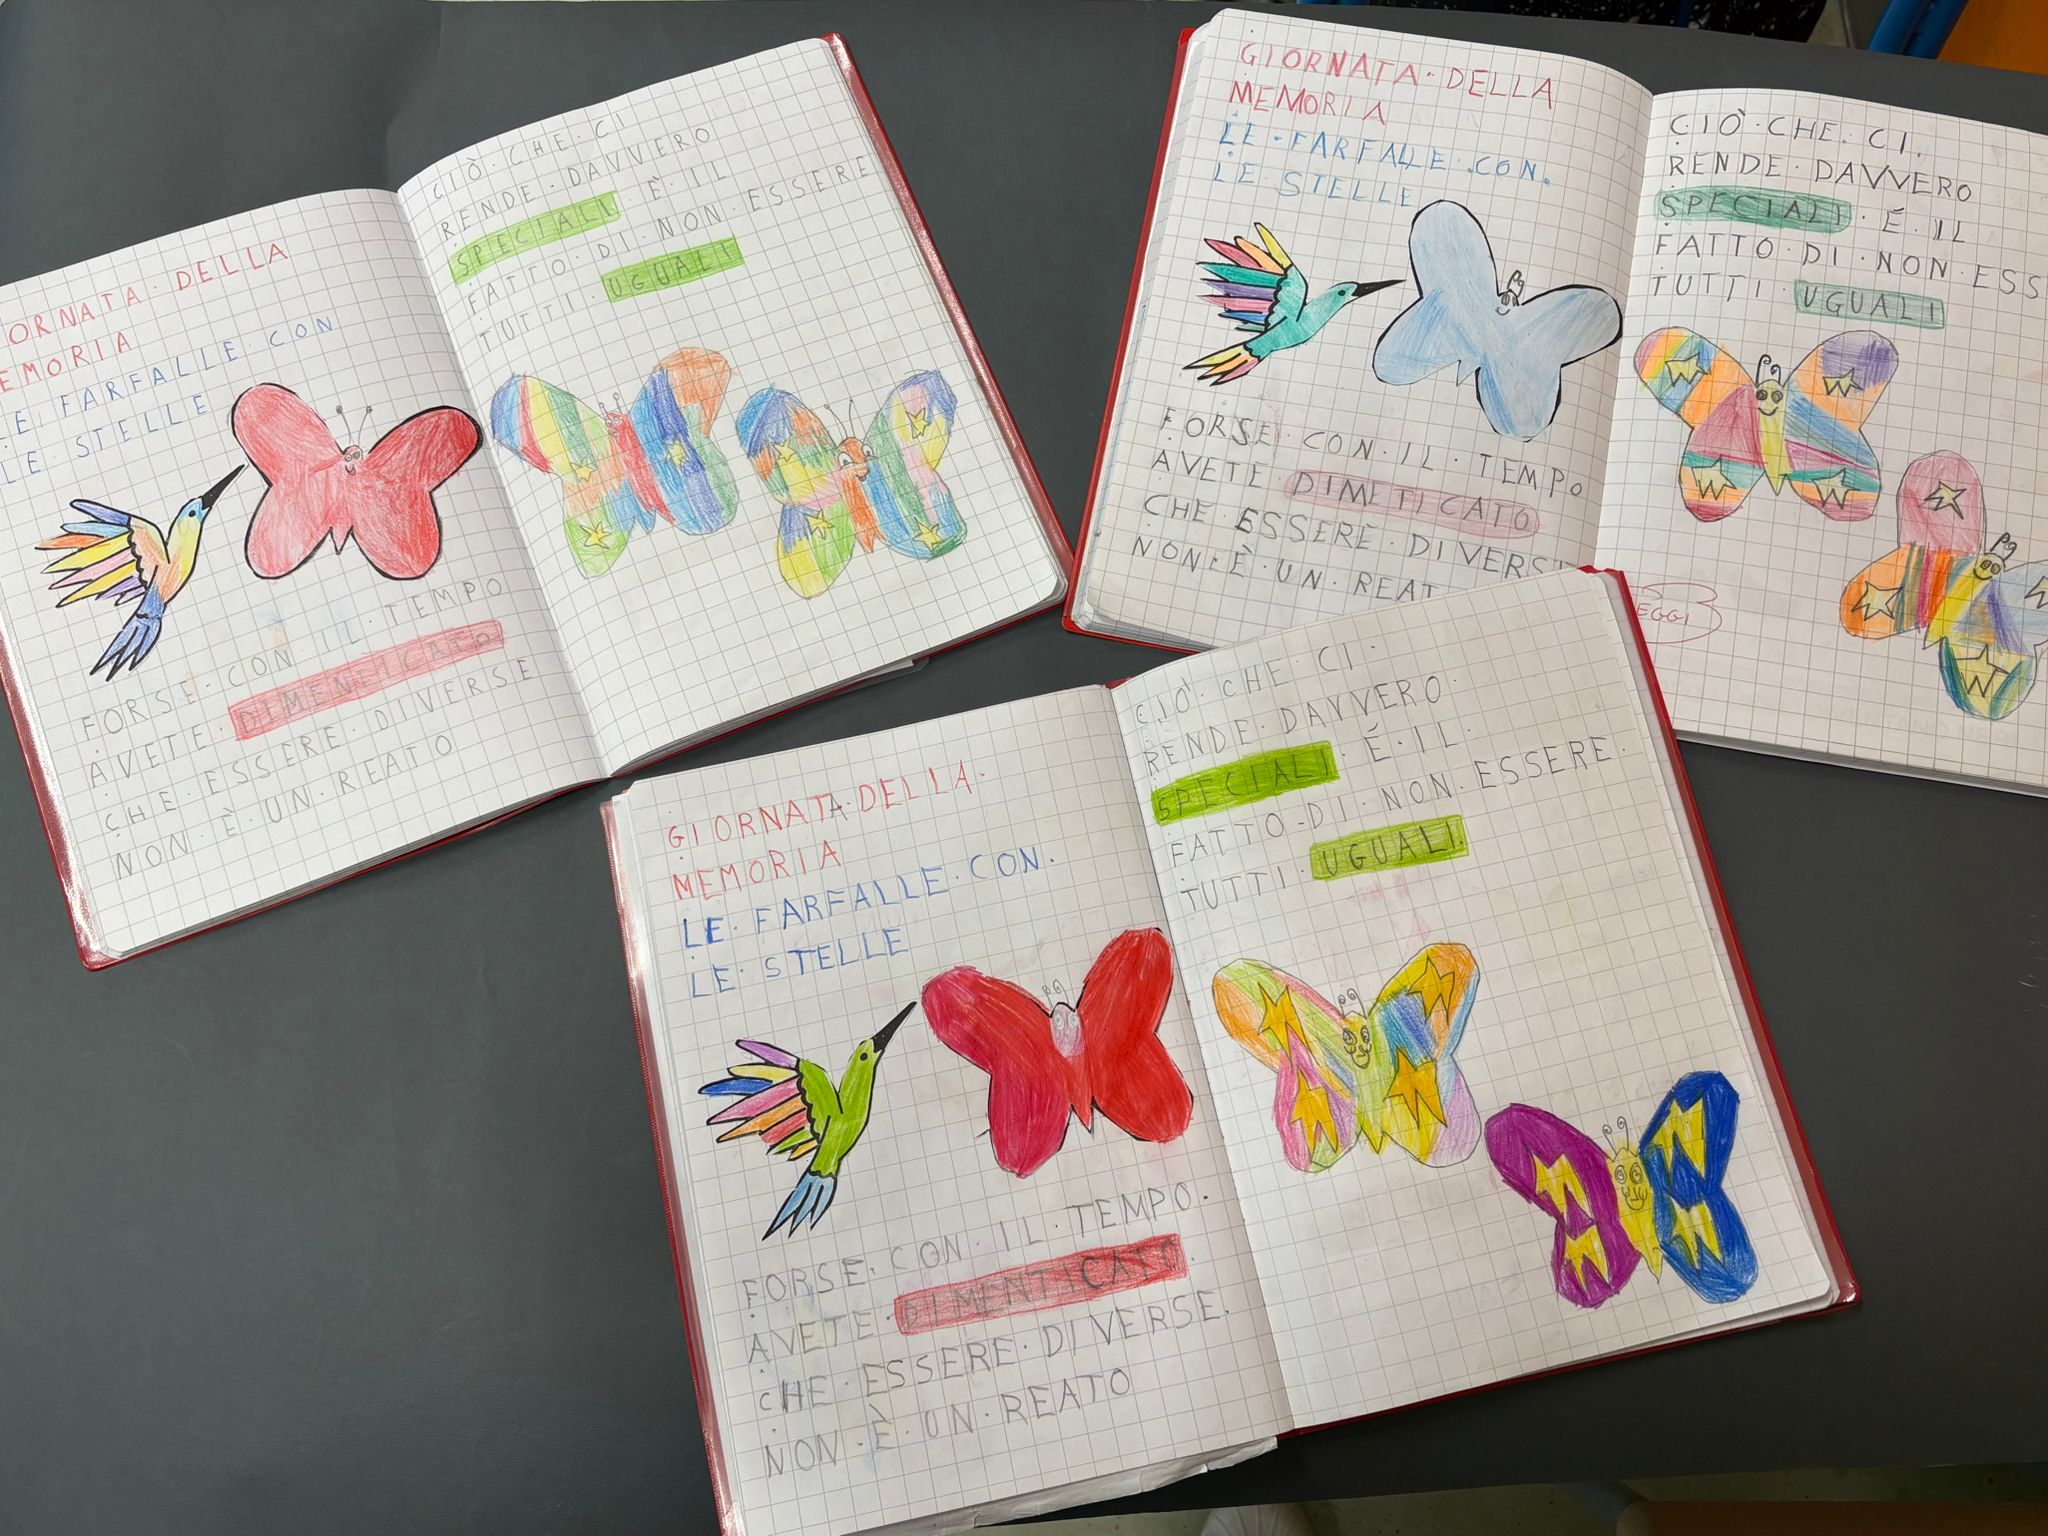 ORNATA · DELLA
EMORIA
E · FARFALLE · CON
LE · STELLE
FORSE · CON · IL · TEMPO
AVETE · DIMENEICATO
CHE · ESSERE · DIVERSE
NON · È · UN · REATO
CIÒ · CHE · CI
RENDE · DAVVERO
SPECIALI · È · IL
FATTO · DI · NON · ESSERE
TUTTI · UGUALI
GIORNATA · DELLA
MEMORIA
LE · FARFALLE · CON ·
LE STELLE
FORSE · CON · IL · TEMPO
AVETE DIMETICATO
CHE · ESSERE · DIVERSE
NON · È · UN · REAT
CIÒ · CHE · CI ·
RENDE · DAVVERO
SPECIALI · É · IL
FATTO · DI · NON · ESS
TUTTI · UGUALI
EGGI
GIORNATA · DELLA ·
MEMORIA
LE · FARFALLE · CON ·
LE · STELLE
FORSE · CON · IL · TEMPO ·
AVETE · DIMENTICATO ·
CHE · ESSERE · DIVERSE ·
NON · È · UN · REATO
CIÒ · CHE · CI ·
RENDE · DAVVERO ·
SPECIALI · É · IL ·
FATTO · DI · NON · ESSERE ·
TUTTI · UGUALI ·